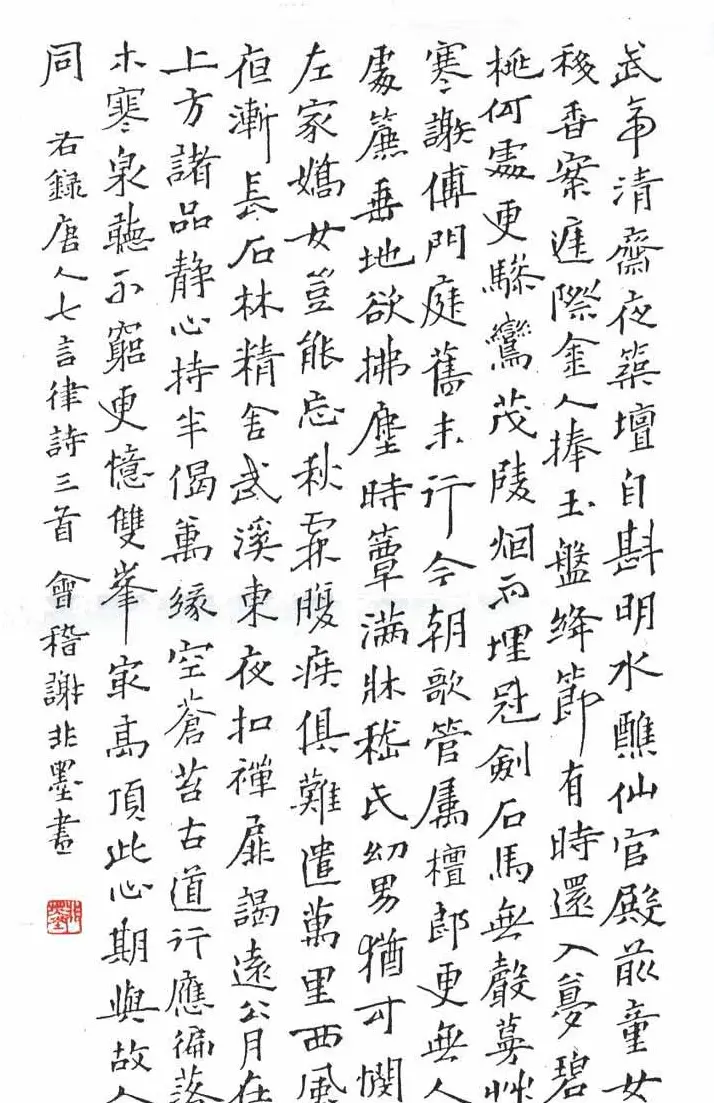 武帝清齋夜築壇自斟明水醮仙官殿前童女
移香案雲際金人捧玉盤絳節有時還入夢碧
桃何處更驂鸞茂陵烟雨埋冠劍石馬無聲蔓草
寒謝傅門庭舊末行今朝歌管屬檀郎更無人
處簾垂地欲拂塵時簟滿牀嵇氏幼男猶可憫
左家嬌女豈能忘秋霖腹疾俱難遣萬里西風
夜漸長石林精舍武溪東夜扣禪扉謁遠公月在
上方諸品静心持半偈萬緣空蒼苔古道行應徧落
木寒泉聽不窮更憶雙峯最高頂此心期與故人
同 右錄唐人七言律詩三首 會稽謝非墨書